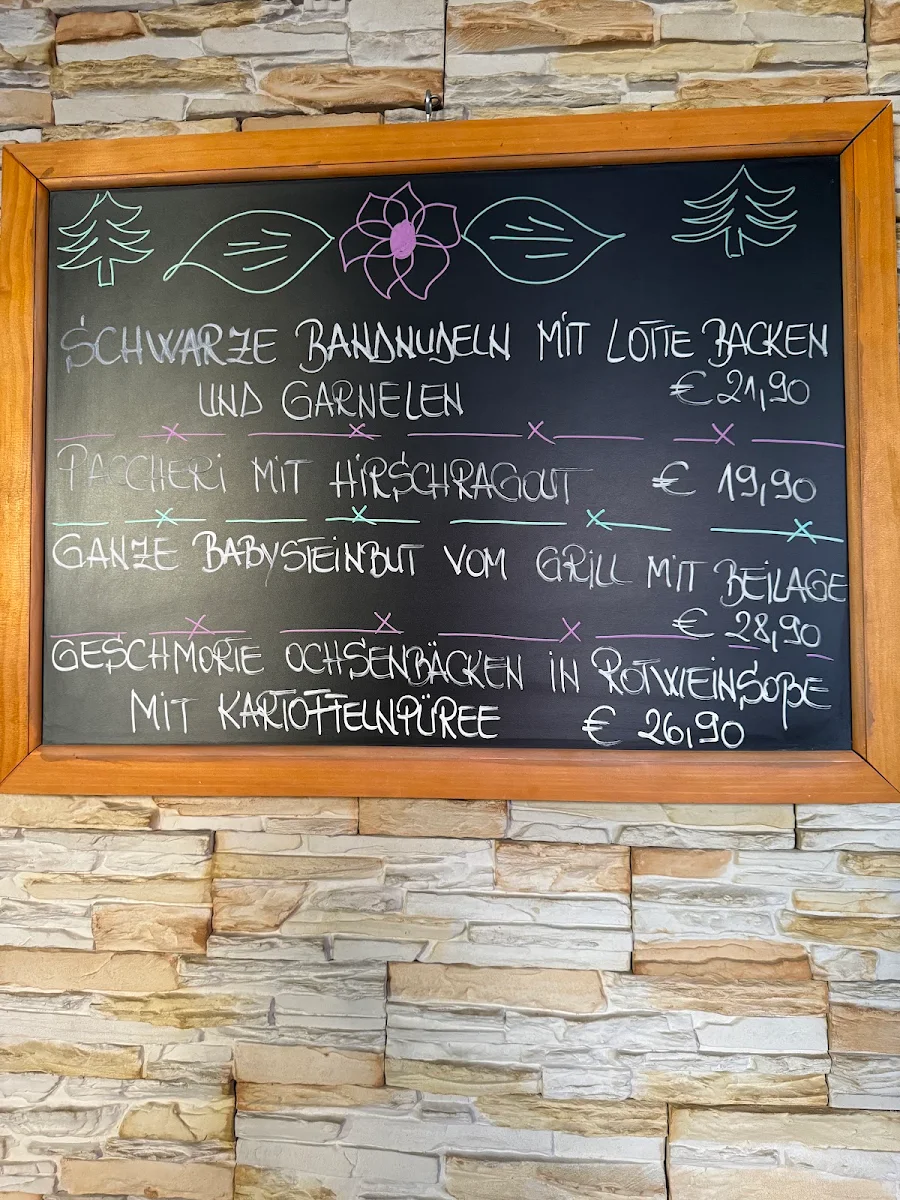 SCHWARZE BANDNUDELN MIT LOTTE BACKEN
UND GARNELEN € 21,90
PACCHERI MIT HIRSCHRAGOUT € 19,90
GANZE BABYSTEINBUT VOM GRILL MIT BEILAGE
€ 28,90
GESCHMORTE OCHSENBÄCKEN IN ROTWEINSOßE
MIT KARTOFFELNPÜREE € 26,90